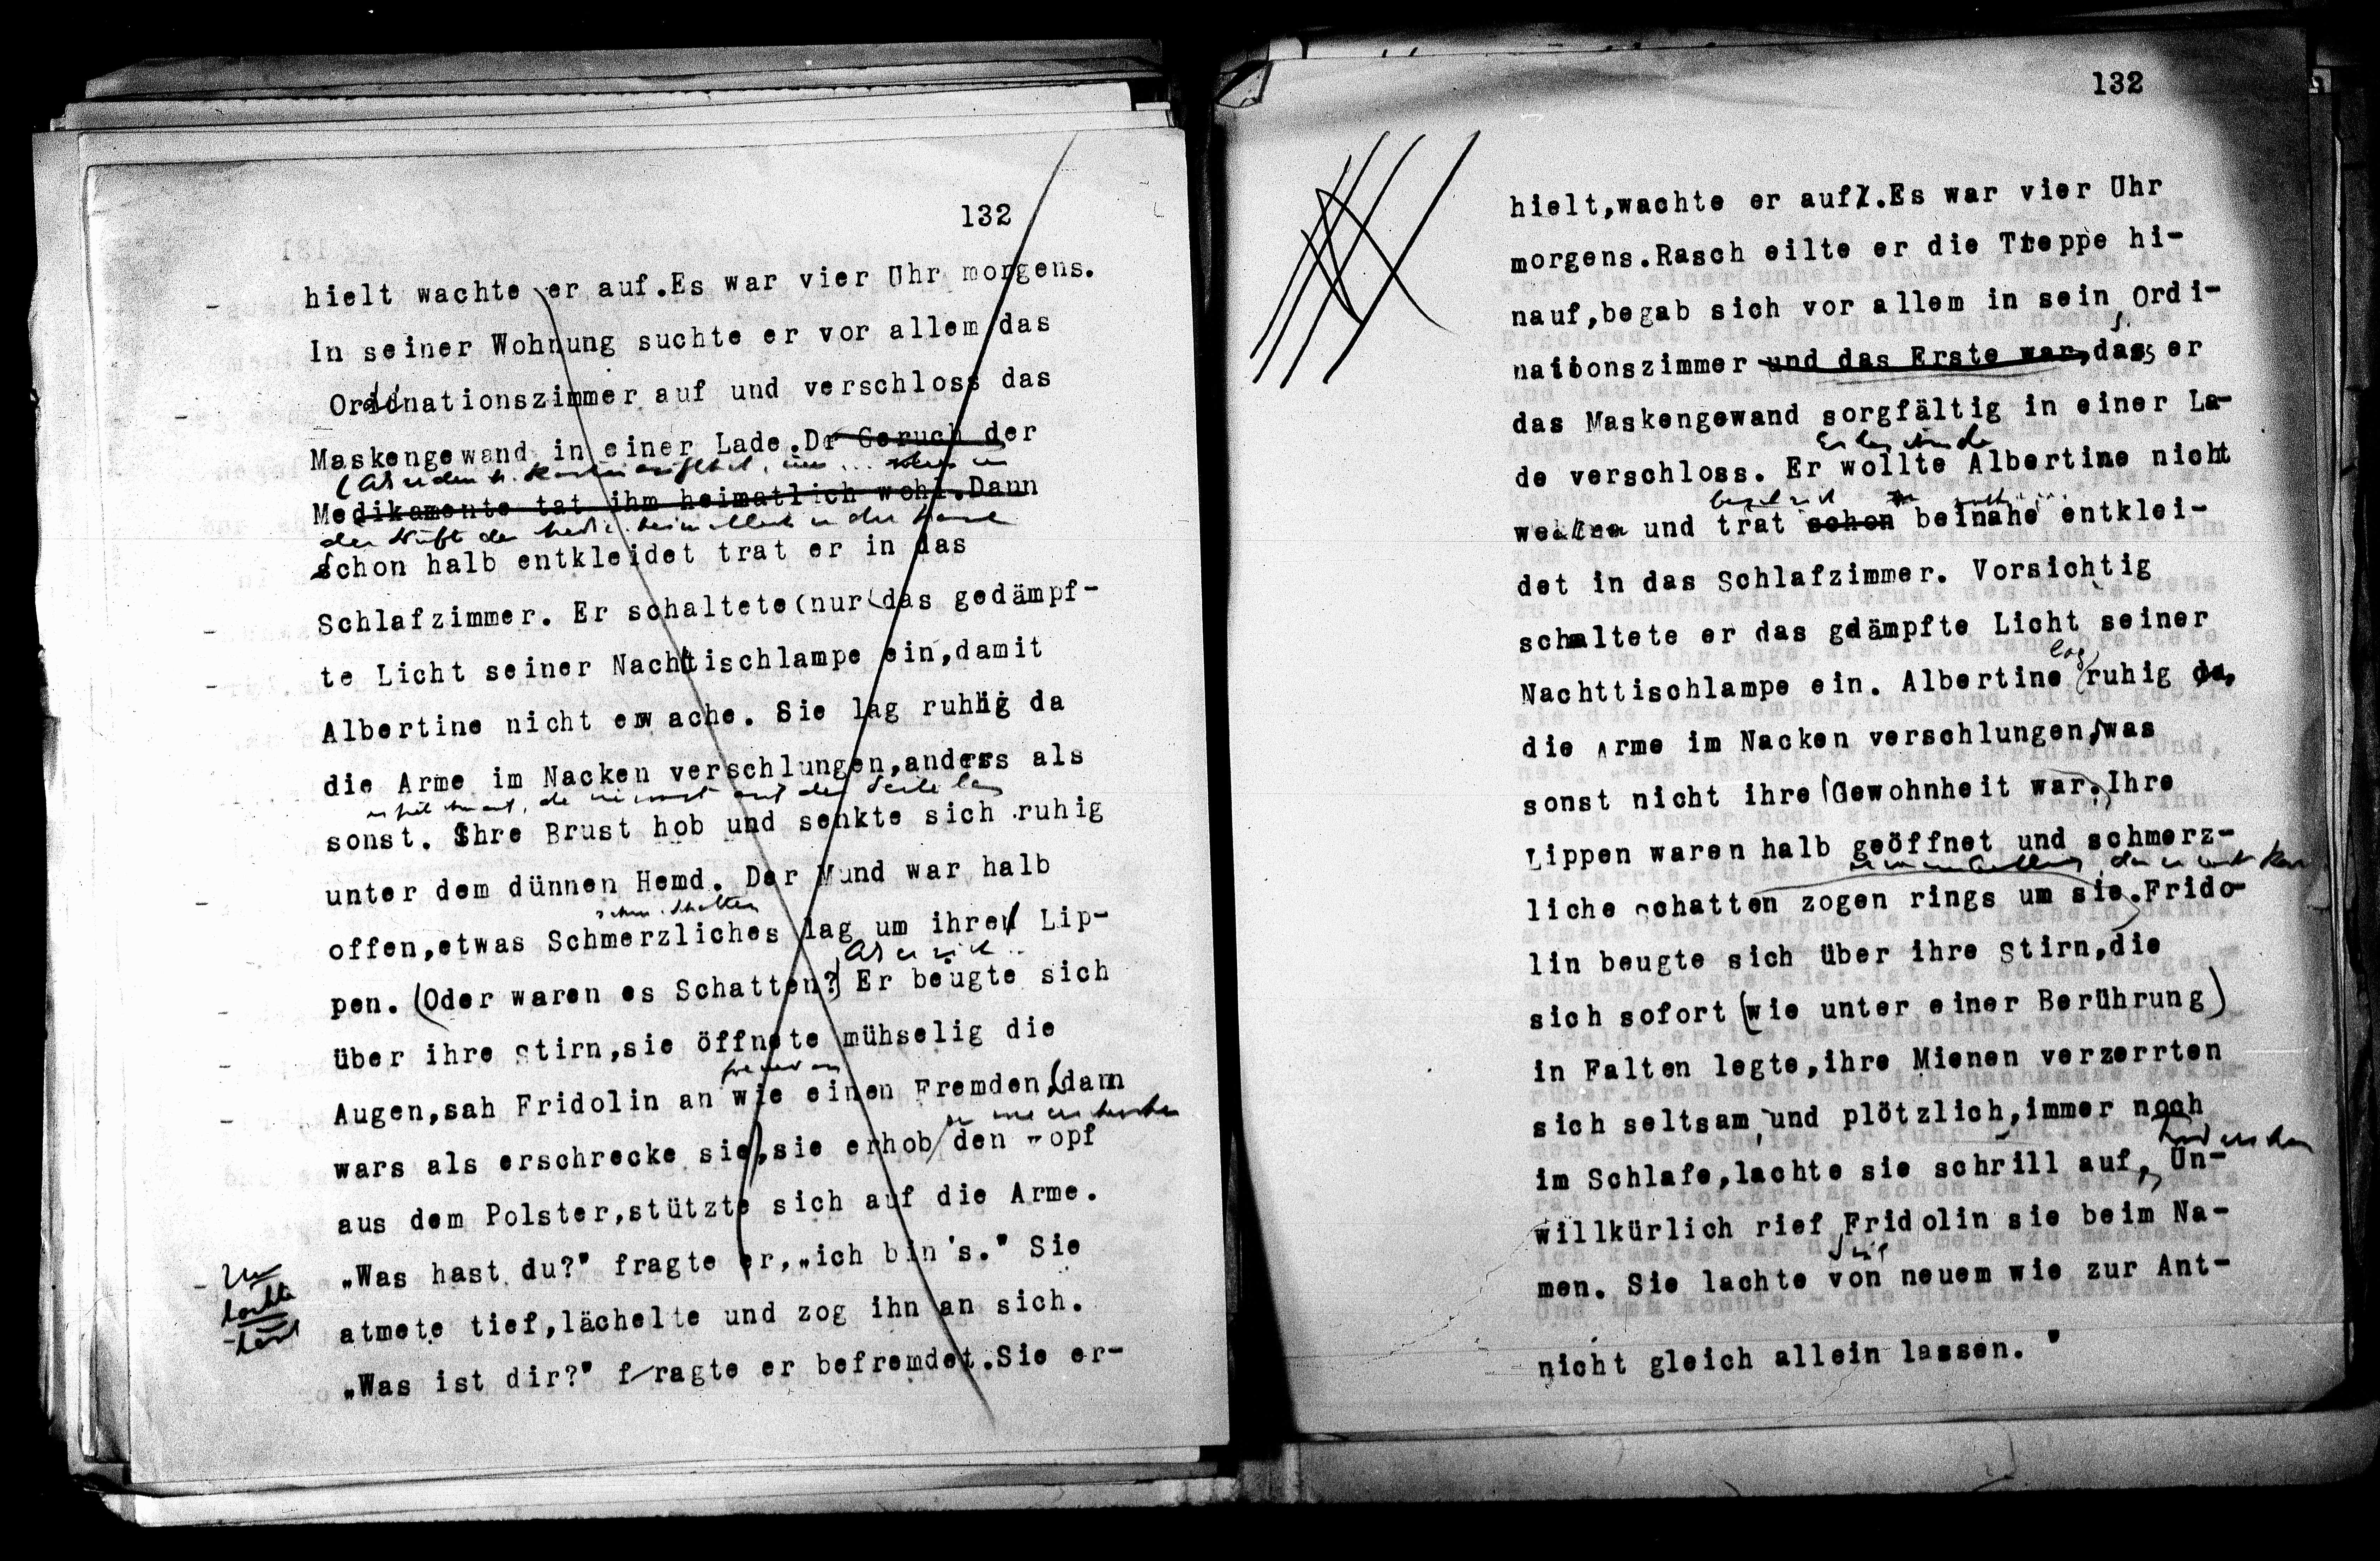 132
hielt wachte er auf.Es war vier Uhr morgens.
In seiner Wohnung suchte er vor allem das
Ordinationszimmer auf und verschloss das
Maskengewand in einer Lade.Dr Geruch der
Medikamente tat ihm heimatlich wohl.Dann
schon halb entkleidet trat er in das
Schlafzimmer. Er schaltete(nur(das gedämpf-
te Licht seiner Nachttischlampe ein,damit
Albertine nicht erwache. Sie lag ruhig da
die Arme im Nacken verschlungen,anders als
sonst. Ihre Brust hob und senkte sich ruhig
unter dem dünnen Hemd. Der Mund war halb
schm. Schatten
offen,etwas Schmerzliches lag um ihre Lip-
Als er sich
pen.(Oder waren es Schatten?)Er beugte sich
über ihre Stirn,sie öffnete mühselig die
Augen,sah Fridolin an wie einen Fremden,(dann
wars als erschrecke sie),sie erhob den Kopf
aus dem Polster,stützte sich auf die Arme.
„Was hast du?" fragte er,„ich bin's." Sie
atmete tief,lächelte und zog ihn an sich.
„Was ist dir?" fragte er befremdet.Sie er-
132
hielt,wachte er auf.Es war vier Uhr
morgens.Rasch eilte er die Treppe hi-
nauf,begab sich vor allem in sein Ordi-
nationszimmer und das Erste war,dass er
das Maskengewand sorgfältig in einer La-
de verschloss. Er wollte Albertine nicht
wecken und trat schon beinahe entklei-
det in das Schlafzimmer. Vorsichtig
schaltete er das gdämpfte Licht seiner
lag
Nachttischlampe ein. Albertine ruhig da,
die Arme im Nacken verschlungen,was
sonst nicht ihre(Gewohnheit war.)Ihre
Lippen waren halb geöffnet und schmerz-
liche Schatten zogen rings um sie.Frido-
lin beugte sich über ihre Stirn,die
sich sofort (wie unter einer Berührung)
in Falten legte,ihre Mienen verzerrten
sich seltsam und plötzlich,immer noch
im Schlafe,lachte sie schrill auf, Un-
willkürlich rief Fridolin sie beim Na-
men. Sie lachte von neuem wie zur Ant-
nicht gleich allein lassen."